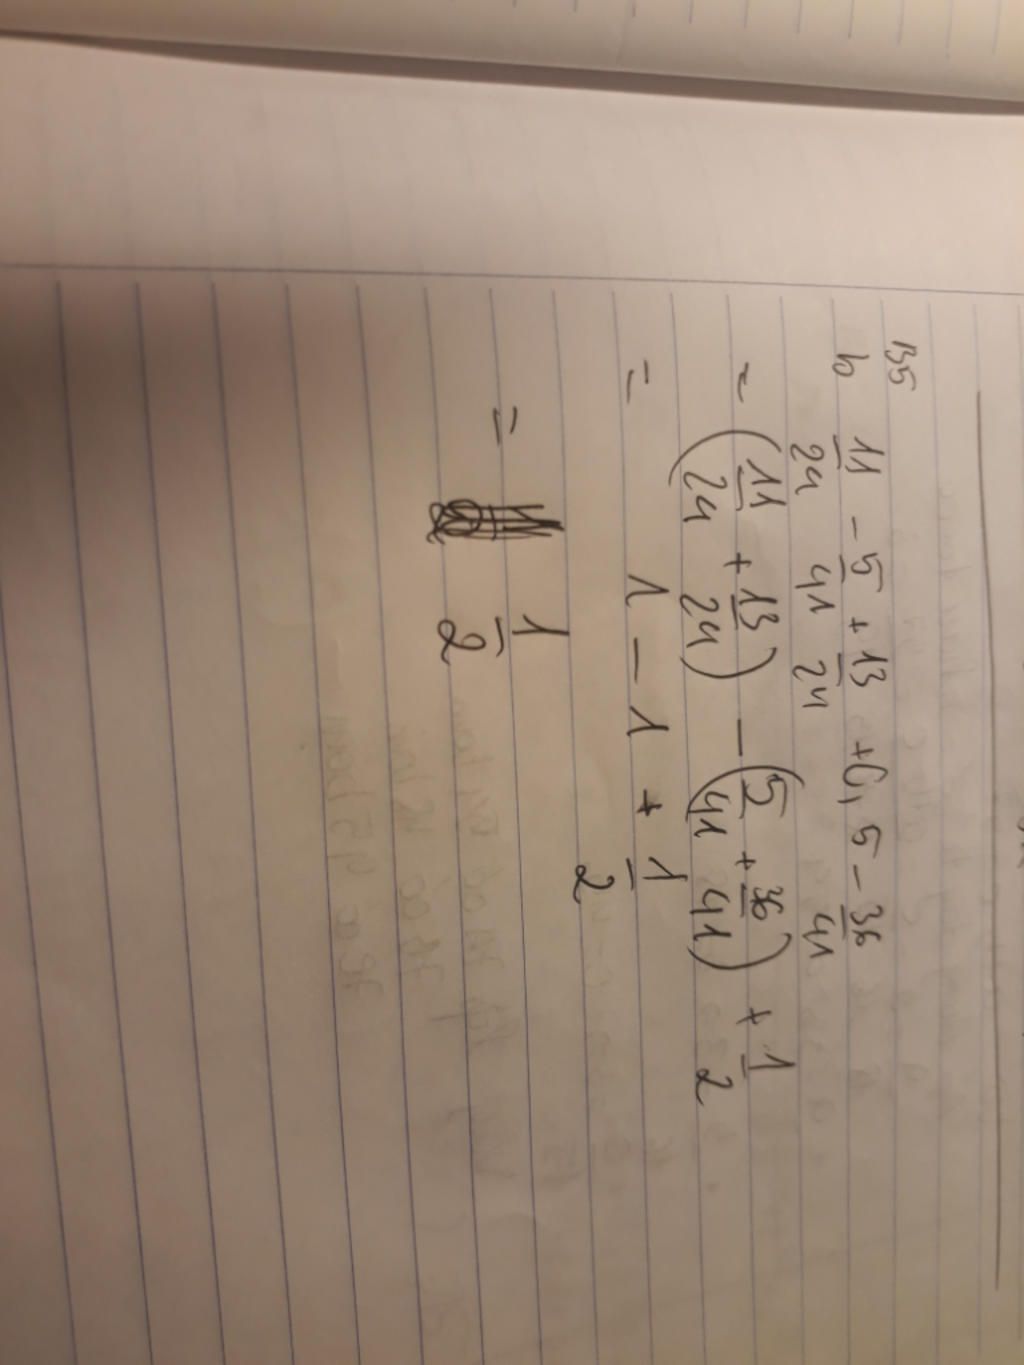 B5
b 11/24 - 5/41 + 13/24 + 0,5 - 36/41
= (11/24 + 13/24) - (5/41 + 36/41) + 1/2
= 1 - 1 + 1/2
= 1/2